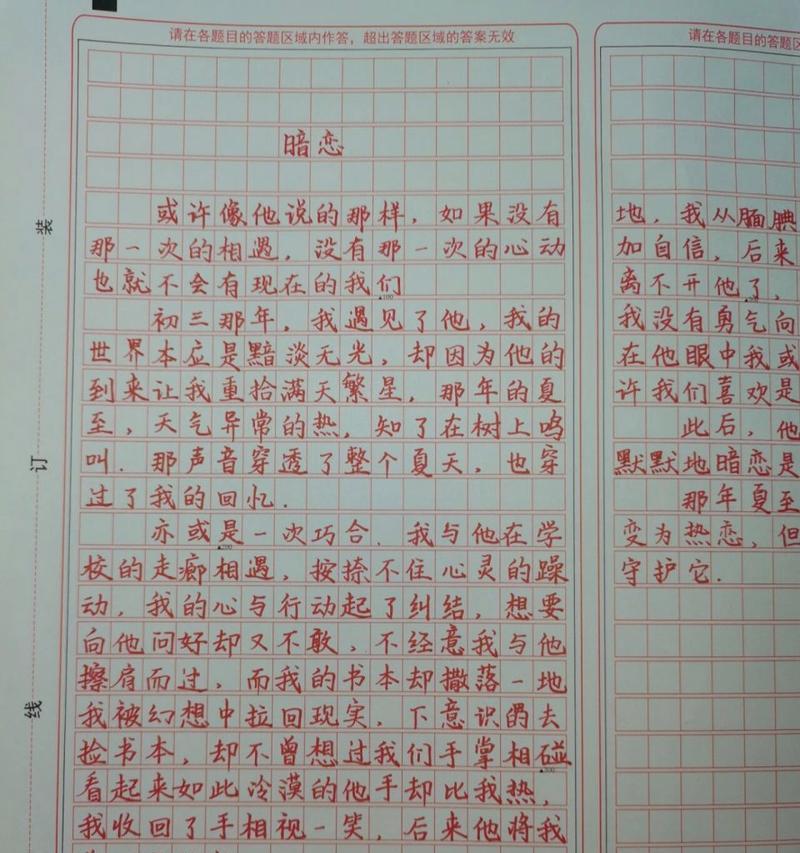 请在各题目的答题区域内作答，超出答题区域的答案无效
暗恋
或许像他说的那样，如果没有
那一次的相遇，没有那一次的心动
也就不会有现在的我们
▲100
初三那年，我遇见了他，我的
世界本应是黯淡无光，却因为他的
到来让我重拾满天繁星，那年的夏
至，天气异常的热，知了在树上鸣
叫.那声音穿透了整个夏天，也穿
过了我的回忆.
亦或是一次巧合.我与他在学
▲200
校的走廊相遇，按捺不住心灵的躁
动，我的心与行动起了纠结，想要
向他问好却又不敢，不经意我与他
擦肩而过，而我的书本却撒落一地
我被幻想中拉回现实，下意识的去
捡书本，却不曾想过我们手掌相碰
▲300
看起来如此冷漠的他手却比我热，
我收回了手相视一笑，后来他将我
请在各题目的答题区
地，我从腼腆
加自信，后来
离不开他了，
我没有勇气向
在他眼中我或
许我们喜欢是
此后，他
默默地暗恋是
那年夏至
变为热恋，但
守护它.
装
订
线